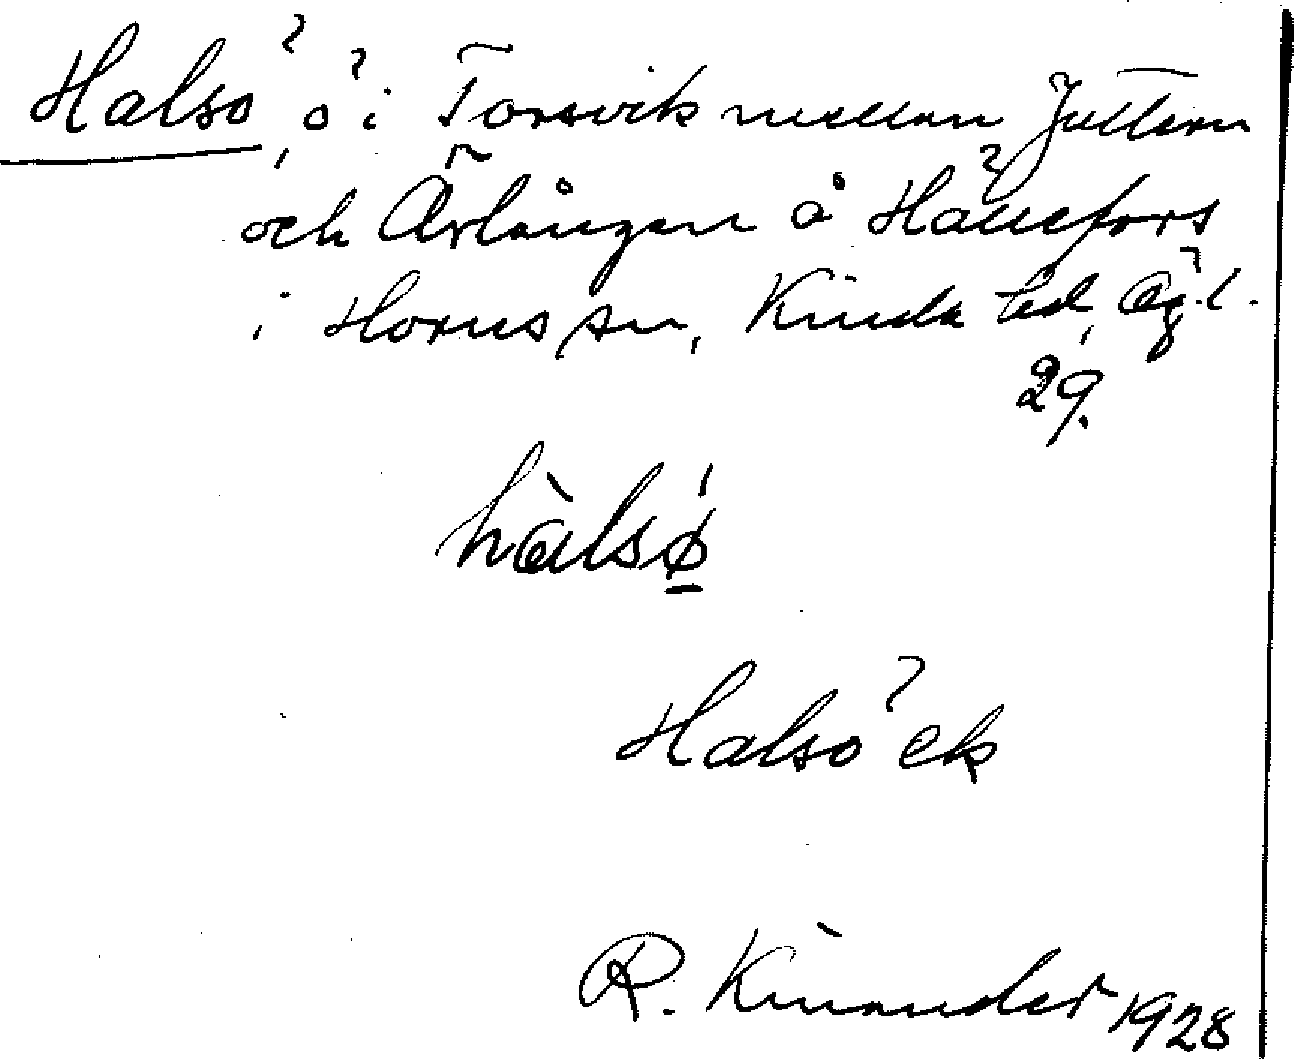 Halsö, ö i Torsvik mellan Juttern
och Ärlången å Hällefors
i Horns sn, Kinda hd, Ög.l.
29.
hàlsǿ̱
Halsö ek
R. Kinander 1928